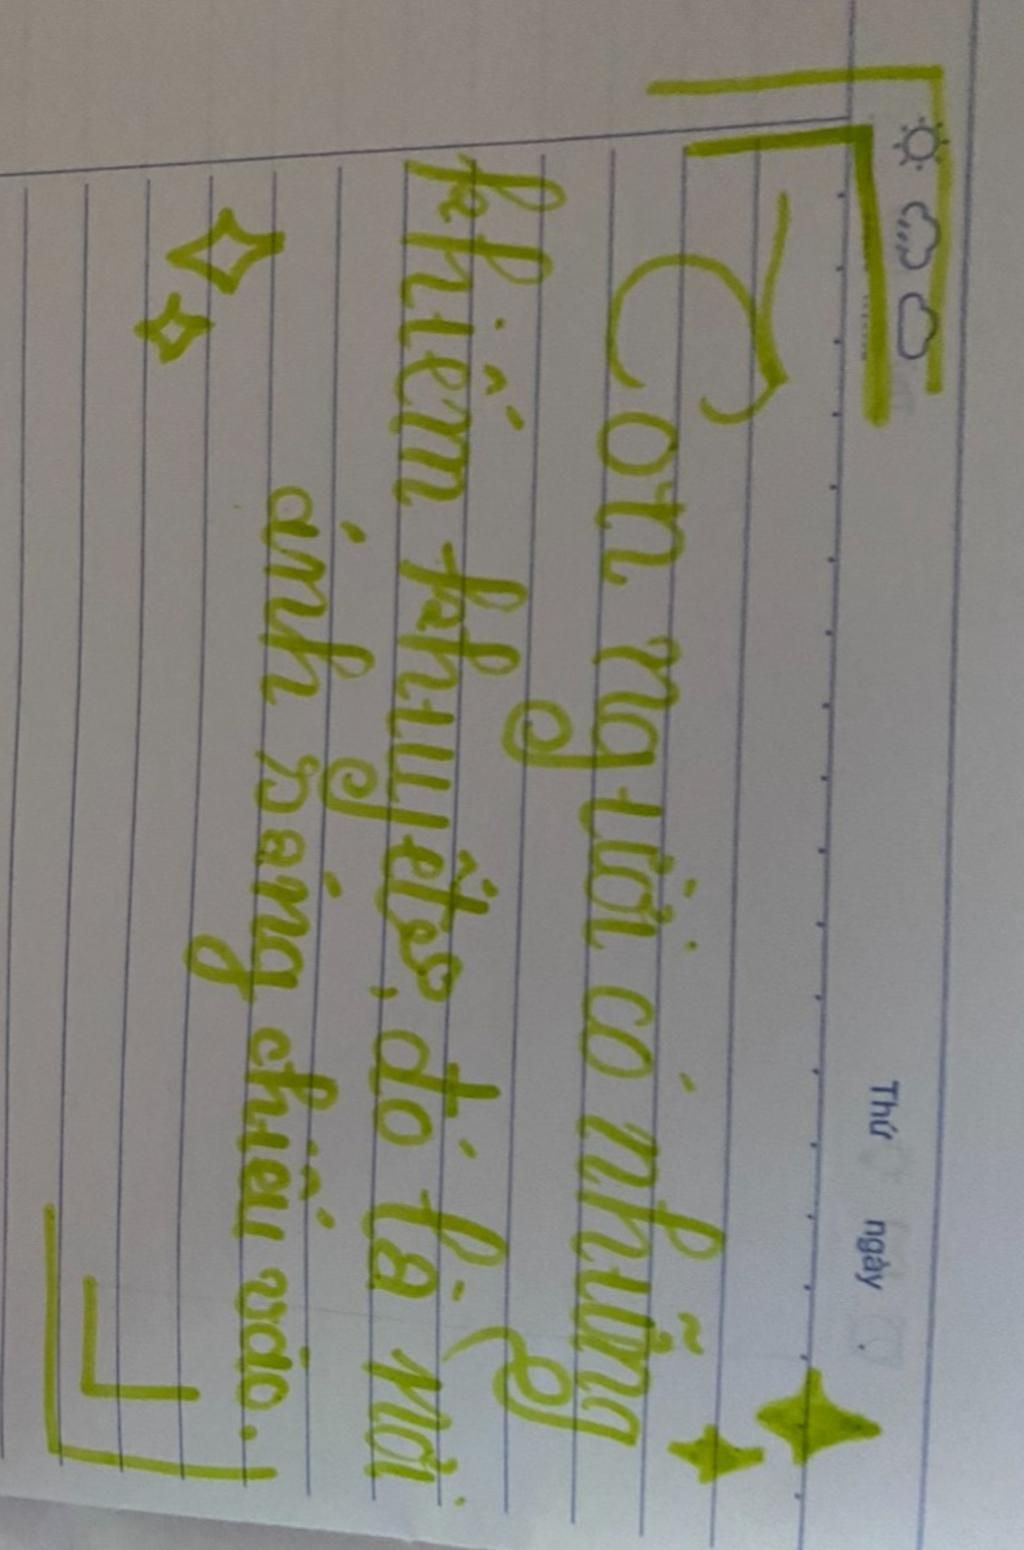 Thứ ngày
Con người có những
khiếm khuyết, đó là nơi
ánh sáng chiếu vào.